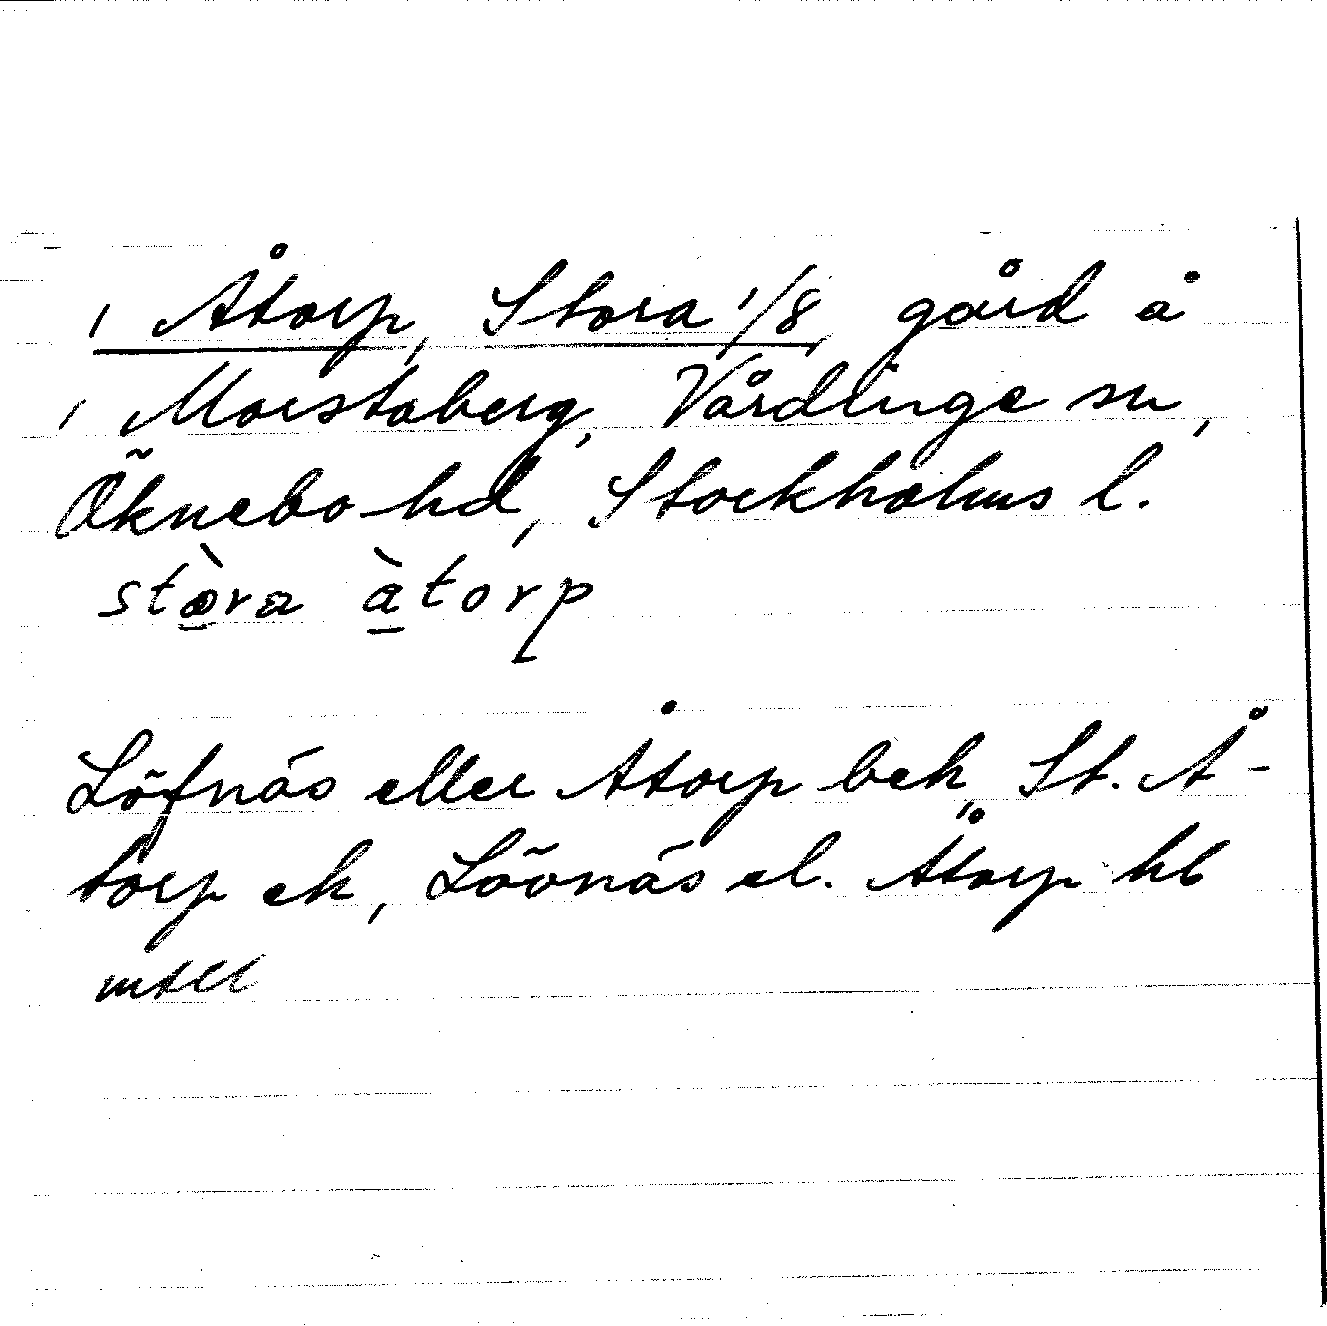 Åtorp, Stora 1/8, gård å
Morstaberg, Vårdinge sn,
Öknebo hd, Stockholms l.
stòra àtorp
Löfnäs eller Åtorp bek, St. Å-
torp ek, Löönäs el. Åtorp hb